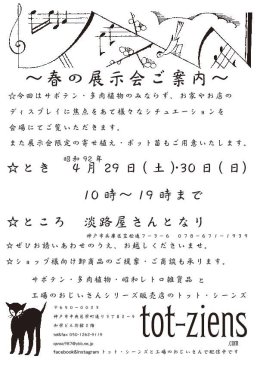 ～春の展示会ご案内～
☆今回はサボテン・多肉植物のみならず、お家やお店の
ディスプレイに焦点をあて様々なシチュエーションを
会場にてご覧いただきます。
また展示会限定の寄せ植え・ポット苗もご用意いたします。
昭和92年
☆とき 4月29日(土)・30日(日)
10時～19時まで
☆ところ 淡路屋さんとなり
神戸市兵庫区笠松通7-3-6 078-671-1939
☆ぜひお誘いあわせのうえ、お越しくださいませ。
☆ショップ様向け卸商品のご提案・ご商談も承ります。
サボテン・多肉植物・昭和レトロ雑貨品 と
工場のおじいさんシリーズ販売店のトット・シーンズ
tot-ziens
.com
facebook&instagram トット・シーンズと工場のおじいさんで配信中です